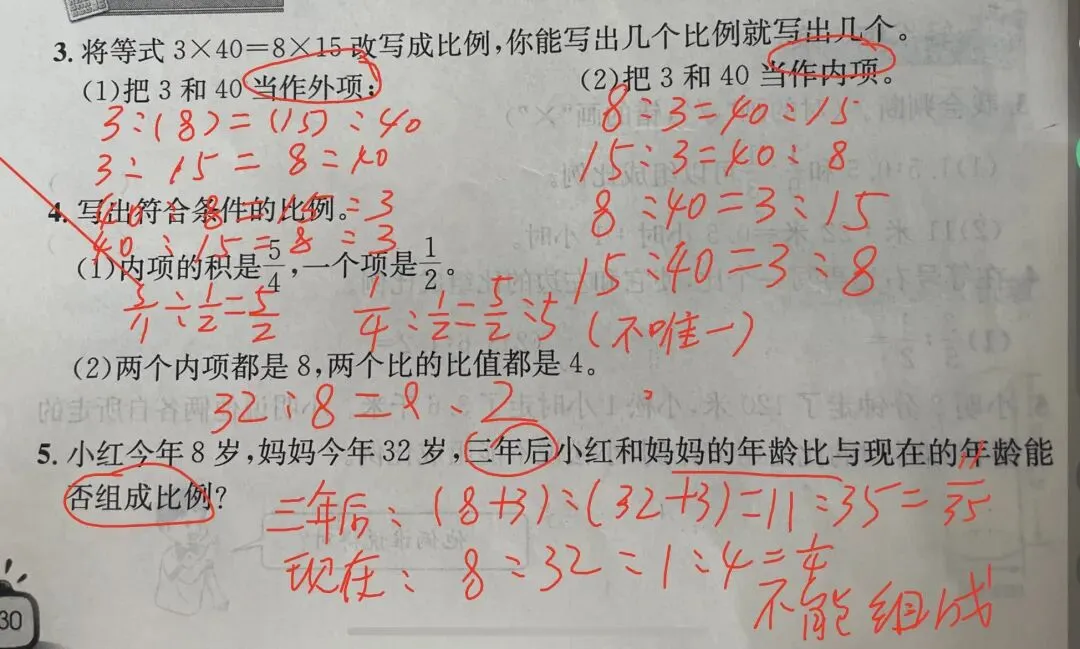 3. 将等式 3×40=8×15 改写成比例,你能写出几个比例就写出几个。
(1)把 3 和 40 当作外项; (2)把 3 和 40 当作内项。
3:(8)=(15):40 8:3=40:15
3:15=8:40 15:3=40:8
40:8=15:3 8:40=3:15
40:15=8:3 15:40=3:8
4. 写出符合条件的比例。
(1)内项的积是5/4,一个项是1/2。
÷1/2=5/2 1/4:1/2=5/2:5 (不唯一)
(2)两个内项都是 8,两个比的比值都是 4。
32:8=8:2
5. 小红今年 8 岁,妈妈今年 32 岁,三年后小红和妈妈的年龄比与现在的年龄能
否组成比例?
三年后:(8+3):(32+3)=11:35=11/35
现在:8:32=1:4=1/4
不能组成
30